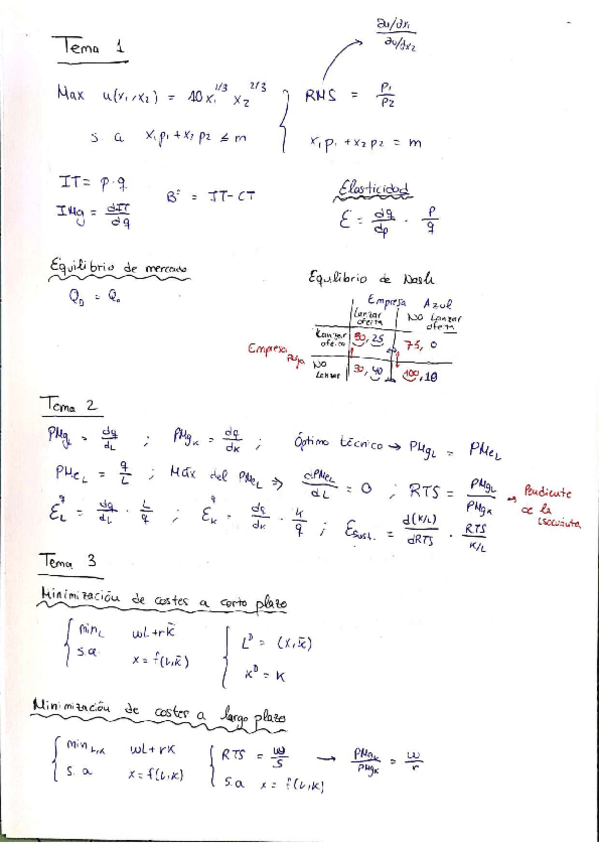 ∂u/∂x₁
∂u/∂x₂
Tema 1
Max u(x₁,x₂) = 10x₁^1/3 x₂^2/3 } RMS = p₁/p₂
s.a x₁p₁+x₂p₂ ≤ m x₁p₁+x₂p₂ = m
IT = p·q
B° = IT-CT
IMg = dIT/dq
Elasticidad
Ɛ = dq/dp · p/q
Equilibrio de mercado
Equilibrio de Nash
Empresa Azul
Lanzar oferta No Lanzar oferta
Empresa Roja
Lanzar oferta 50, 25 75, 0
No Lanzar 30, 40 100, 10
Tema 2
PMg_L = dq/dL ; PMg_K = dq/dK ; Óptimo técnico → PMg_L = PMe_L
PMe_L = q/L ; Máx del PMe_L ⇒ dPMe_L/dL = 0 ; RTS = PMg_L/PMg_K → Pendiente de la isocuanta
Ɛ_L^q = dq/dL · L/q ; Ɛ_K^q = dq/dK · K/q ; Ɛ_sust. = d(K/L)/dRTS · RTS/K/L
Tema 3
Minimización de costes a corto plazo
{ min_L wL+rK̄ { L^D = (x,k̄)
s.a. x = f(L,k̄) K^D = K
Minimización de costes a largo plazo
{ min_L,K wL+rK { RTS = w/s → PMg_L/PMg_K = w/r
s.a x = f(L,K) s.a x = f(L,K)